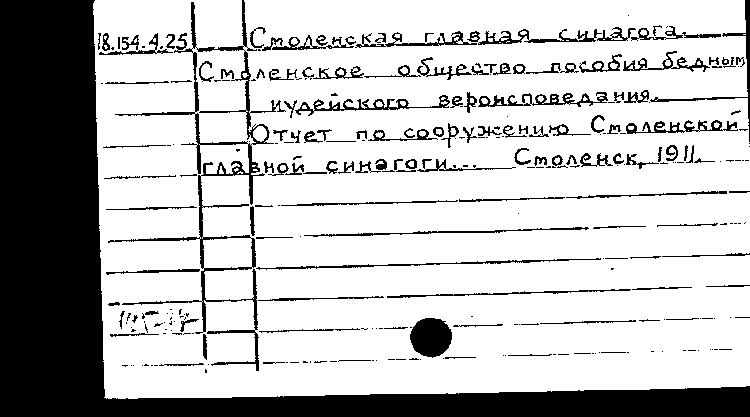 18.154.4.25 Смоленская главная синагога.
Смоленское общество пособия бедным
иудейского вероисповедания.
Отчет по сооружению Смоленской
главной синагоги... Смоленск, 1911.